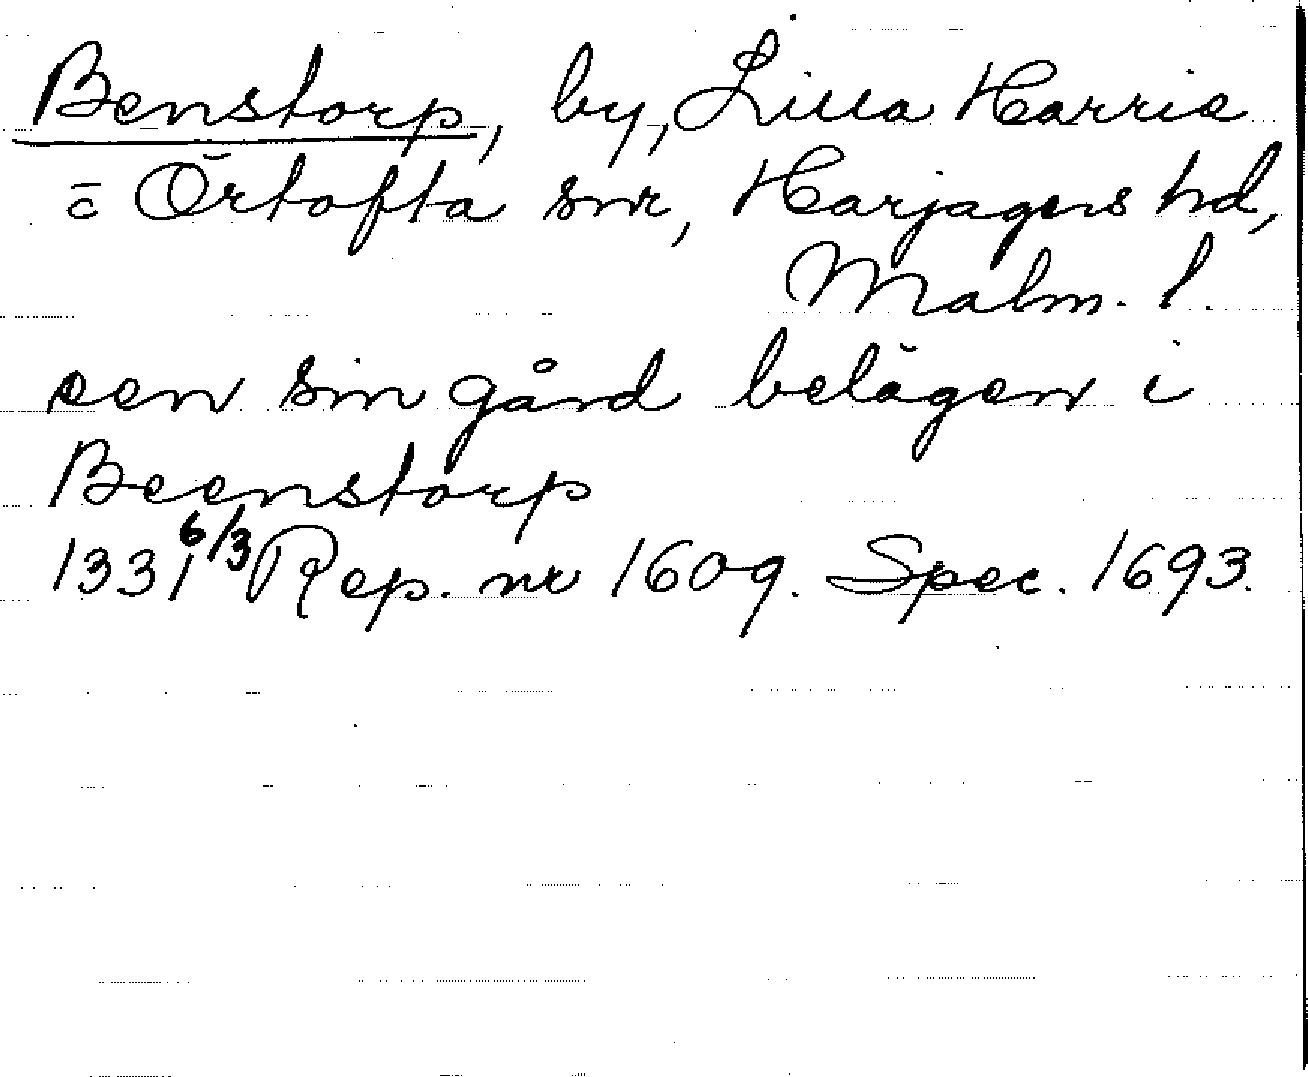 Benstorp, by, Lilla Harrie
= Örtofta snr, Harjagers hd,
Malm. l.
een sin gård belägen i
Beenstorp
1331 6/3 Rep. nr 1609. Spec. 1693.